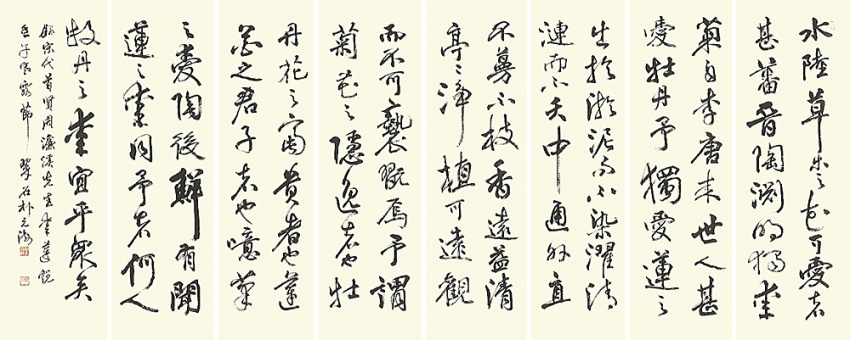 水陸草木之花可愛者
甚蕃晉陶淵明獨愛
菊自李唐来世人甚
愛牡丹予獨愛蓮之
出於淤泥而不染濯清
漣而不夭中通外直
不蔓不枝香遠益清
亭〻淨植可遠觀
而不可褻翫焉予謂
菊花之隱逸者也牡
丹花之富貴者也蓮
花之君子者也噫菊
之愛陶後鮮有聞
蓮之愛同予者何人
牡丹之愛宜乎衆矣
錄宋代周濂溪先生愛蓮說
節 翠石朴元海